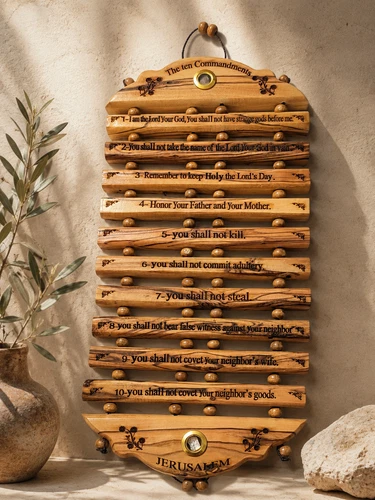 The ten Commandments
1-I am the Lord Your God, You shall not have strange gods before me."
2-You shall not take the name of the Lord Your God in vain.
3- Remember to keep Holy the Lord's Day.
4- Honor Your Father and Your Mother.
5- you shall not kill.
6- you shall not commit adultery.
7-you shall not steal
8-you shall not bear false witness against your neighbor"
9-you shall not covet your neighbor's wife.
10-you shall not covet your neighbor's goods.
JERUSALEM